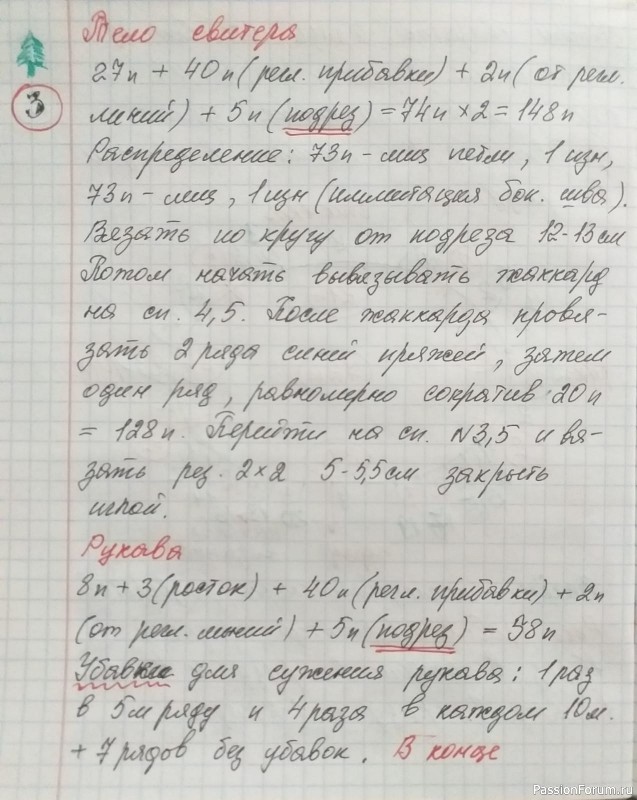 3
Тело свитера
27п + 40п (регл. прибавки) + 2п (от регл.
линий) + 5п (подрез) = 74п × 2 = 148п
Распределение: 73п - лиц петли, 1 изн,
73п - лиц, 1 изн (иммитация бок. шва).
Вязать по кругу от подреза 12-13 см
Потом начать вывязывать жаккард
на сп. 4,5. После жаккарда провя-
зать 2 ряда синей пряжей, затем
один ряд, равномерно сократив 20п
= 128п. Перейти на сп. №3,5 и вя-
зать рез. 2×2 5-5,5 см закрыть
иглой.
Рукава
8п + 3 (росток) + 40п (регл. прибавки) + 2п
(от регл. линий) + 5п (подрез) = 58п
Убавки для сужения рукава: 1 раз
в 5м ряду и 4 раза в каждом 10м.
+ 7 рядов без убавок. В конце
PassionForum.ru